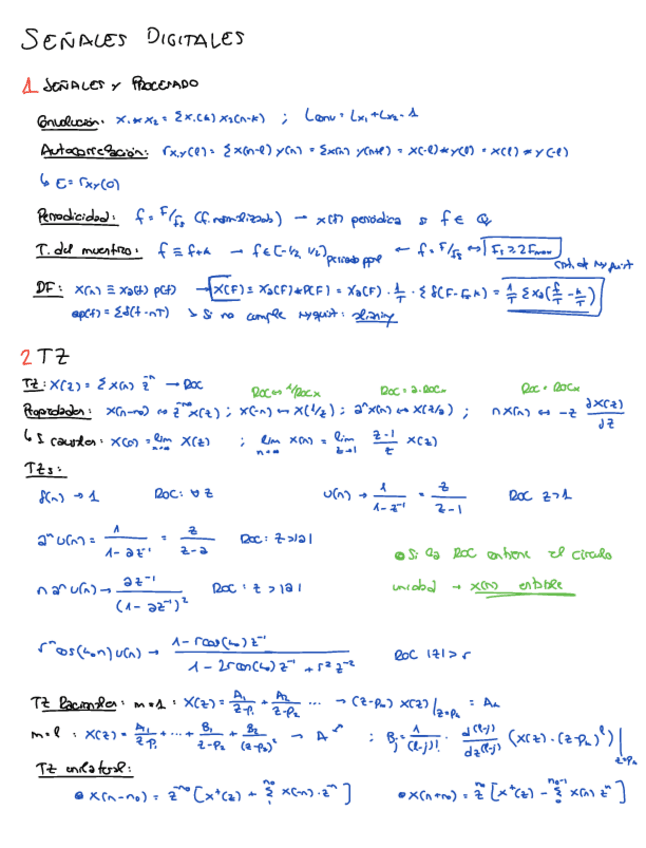 SEÑALES DIGITALES
1 SEÑALES Y PROCESADO
Convolución: x₁ * x₂ = Σ x₁(k) x₂(n-k) ; Lconv = Lx₁ + Lx₂ - 1
Autocorrelación: rx,y(l) = Σ x(n-l) y(n) = Σ x(n) y(n+l) = x(-l) * y(l) = x(l) * y(-l)
↳ E = rxy(0)
Periodicidad: f = F/Fs (f. normalizada) → x(t) periódica si f ∈ Q
T. del muestreo: f ≡ f+k → f ∈ [-1/2, 1/2] periodo ppal ← f = F/Fs ↔ Fs ≥ 2Fmax
crit. de Nyquist
DF: x(n) ≡ xa(t) p(t) → X(F) = Xa(F) * P(F) = Xa(F) · 1/T · Σ δ(F - Fs k) = 1/T Σ Xa(f/T - k/T)
ap(t) = Σ δ(t - nT) ↳ Si no cumple Nyquist: aliasing
2 TZ
TZ: X(z) = Σ x(n) z⁻ⁿ → ROC
ROC ↔ 1/ROCx ROC = a·ROCx ROC = ROCx
Propiedades: x(n-n₀) ↔ z^-n₀ X(z) ; x(-n) ↔ X(1/z) ; aⁿ x(n) ↔ X(z/a) ; n x(n) ↔ -z dX(z)/dz
↳ S causales: x(0) = lim X(z) ; lim x(n) = lim z→1 (z-1)/z X(z)
TZs:
δ(n) → 1 ROC: ∀ z u(n) → 1/(1-z⁻¹) = z/(z-1) ROC z>1
aⁿ u(n) = 1/(1-az⁻¹) = z/(z-a) ROC: z>|a|
● Si la ROC contiene el círculo
n aⁿ u(n) → az⁻¹/(1-az⁻¹)² ROC: z > |a|
unidad → x(n) estable
rⁿ cos(ω₀n) u(n) → (1 - r cos(ω₀) z⁻¹)/(1 - 2r cos(ω₀) z⁻¹ + r² z⁻²) ROC |z| > r
TZ Racionales: m=1 : X(z) = A₁/(z-p₁) + A₂/(z-p₂) ... → (z-pₖ) X(z)|z=pₖ = Aₖ
m=l : X(z) = A₁/(z-p₁) + ... + B₁/(z-p₂) + B₂/(z-pₖ)² → A ; Bj = 1/(l-j)! · d^(l-j)/dz^(l-j) (X(z)·(z-pₖ)^l)|z=pₖ
TZ unilateral:
● x(n-n₀) = z^-n₀ [x⁺(z) + Σ x(-n)·zⁿ] ● x(n+n₀) = z^n₀ [x⁺(z) - Σ x(n) z⁻ⁿ]